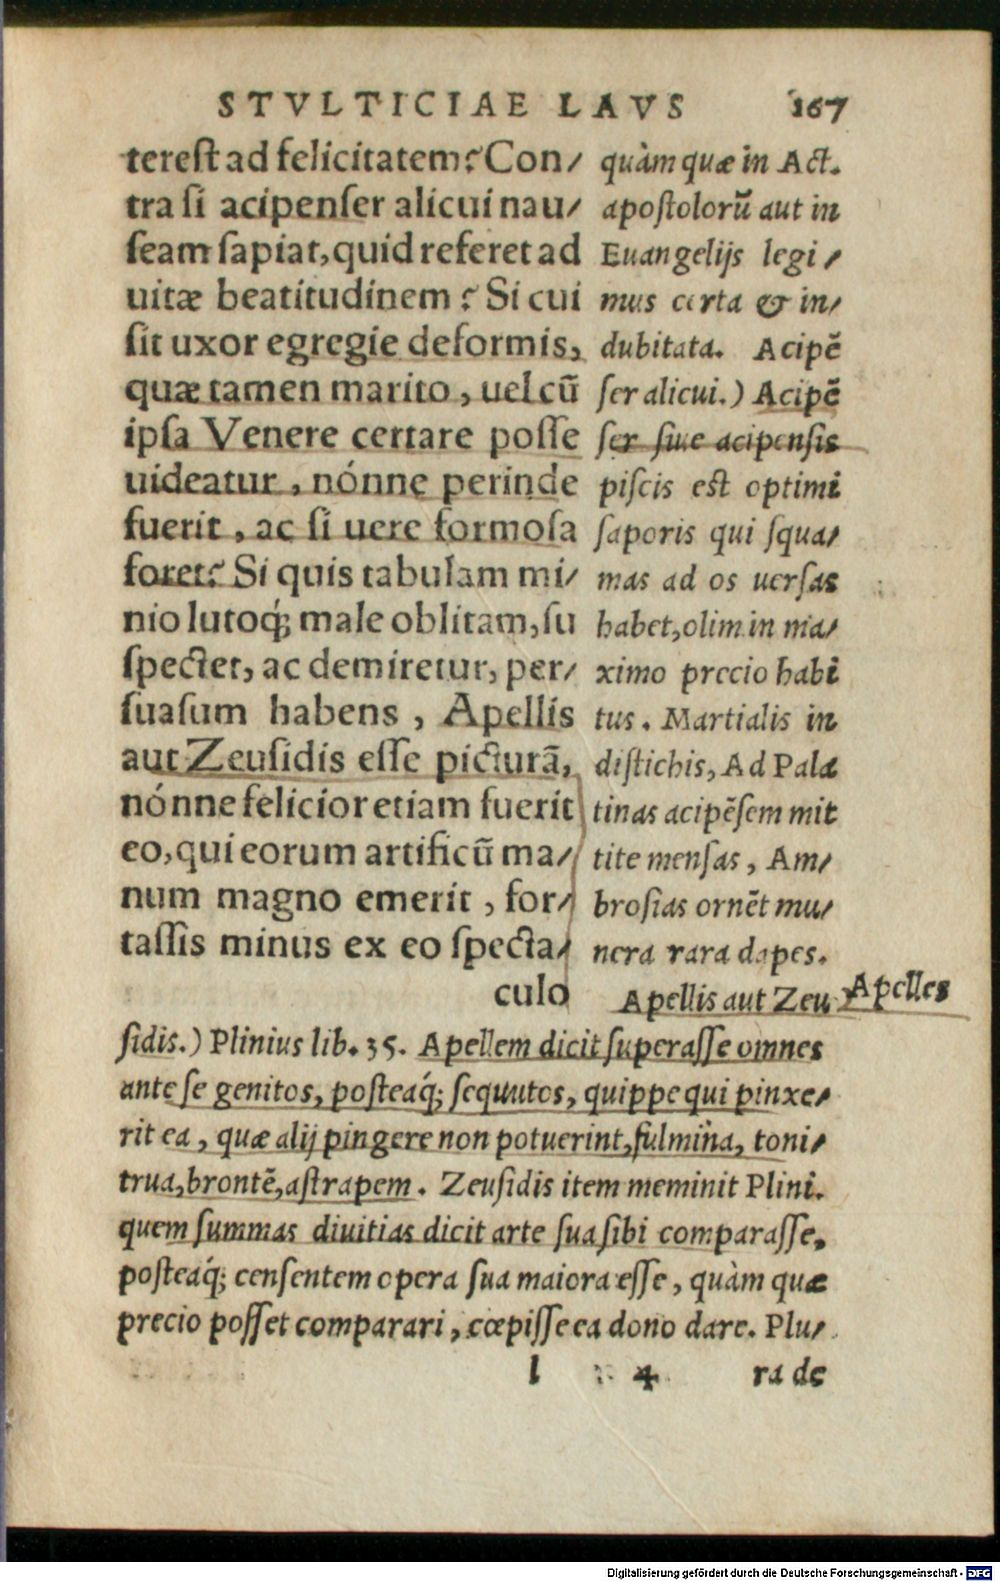 STVLTICIAE LAVS 167
terest ad felicitatem? Con/
tra si acipenser alicui nau/
seam sapiat, quid referet ad
uitæ beatitudinem? Si cui
sit uxor egregie deformis,
quæ tamen marito, uel cũ
ipsa Venere certare posse
uideatur, nónne perinde
fuerit, ac si uere formosa
foret? Si quis tabulam mi/
nio lutoq́; male oblitam, su
spectet, ac demiretur, per/
suasum habens, Apellis
aut Zeusidis esse picturã,
nónne felicior etiam fuerit
eo, qui eorum artificũ ma/
num magno emerit, for/
tassis minus ex eo specta/
culo
quàm quæ in Act.
apostolorũ aut in
Euangelijs legi/
mus certa & in/
dubitata. Acipẽ
ser alicui.) Acipẽ
ser siue acipensis
piscis est optimi
saporis qui squa/
mas ad os uersas
habet, olim in ma/
ximo precio habi
tus. Martialis in
distichis, Ad Pala
tinas acipẽsem mit
tite mensas, Am/
brosias ornẽt mu/
nera rara dapes.
Apellis aut Zeu
Apelles
sidis.) Plinius lib. 35. Apellem dicit superasse omnes
ante se genitos, posteaq́; sequutos, quippe qui pinxe/
rit ea, quæ alij pingere non potuerint, fulmina, toni/
trua, brontẽ, astrapem. Zeusidis item meminit Plini.
quem summas diuitias dicit arte sua sibi comparasse,
posteaq́; censentem opera sua maiora esse, quàm quæ
precio posset comparari, cœpisse ea dono dare. Plu/
l 4 ra de
Digitalisierung gefördert durch die Deutsche Forschungsgemeinschaft - DFG